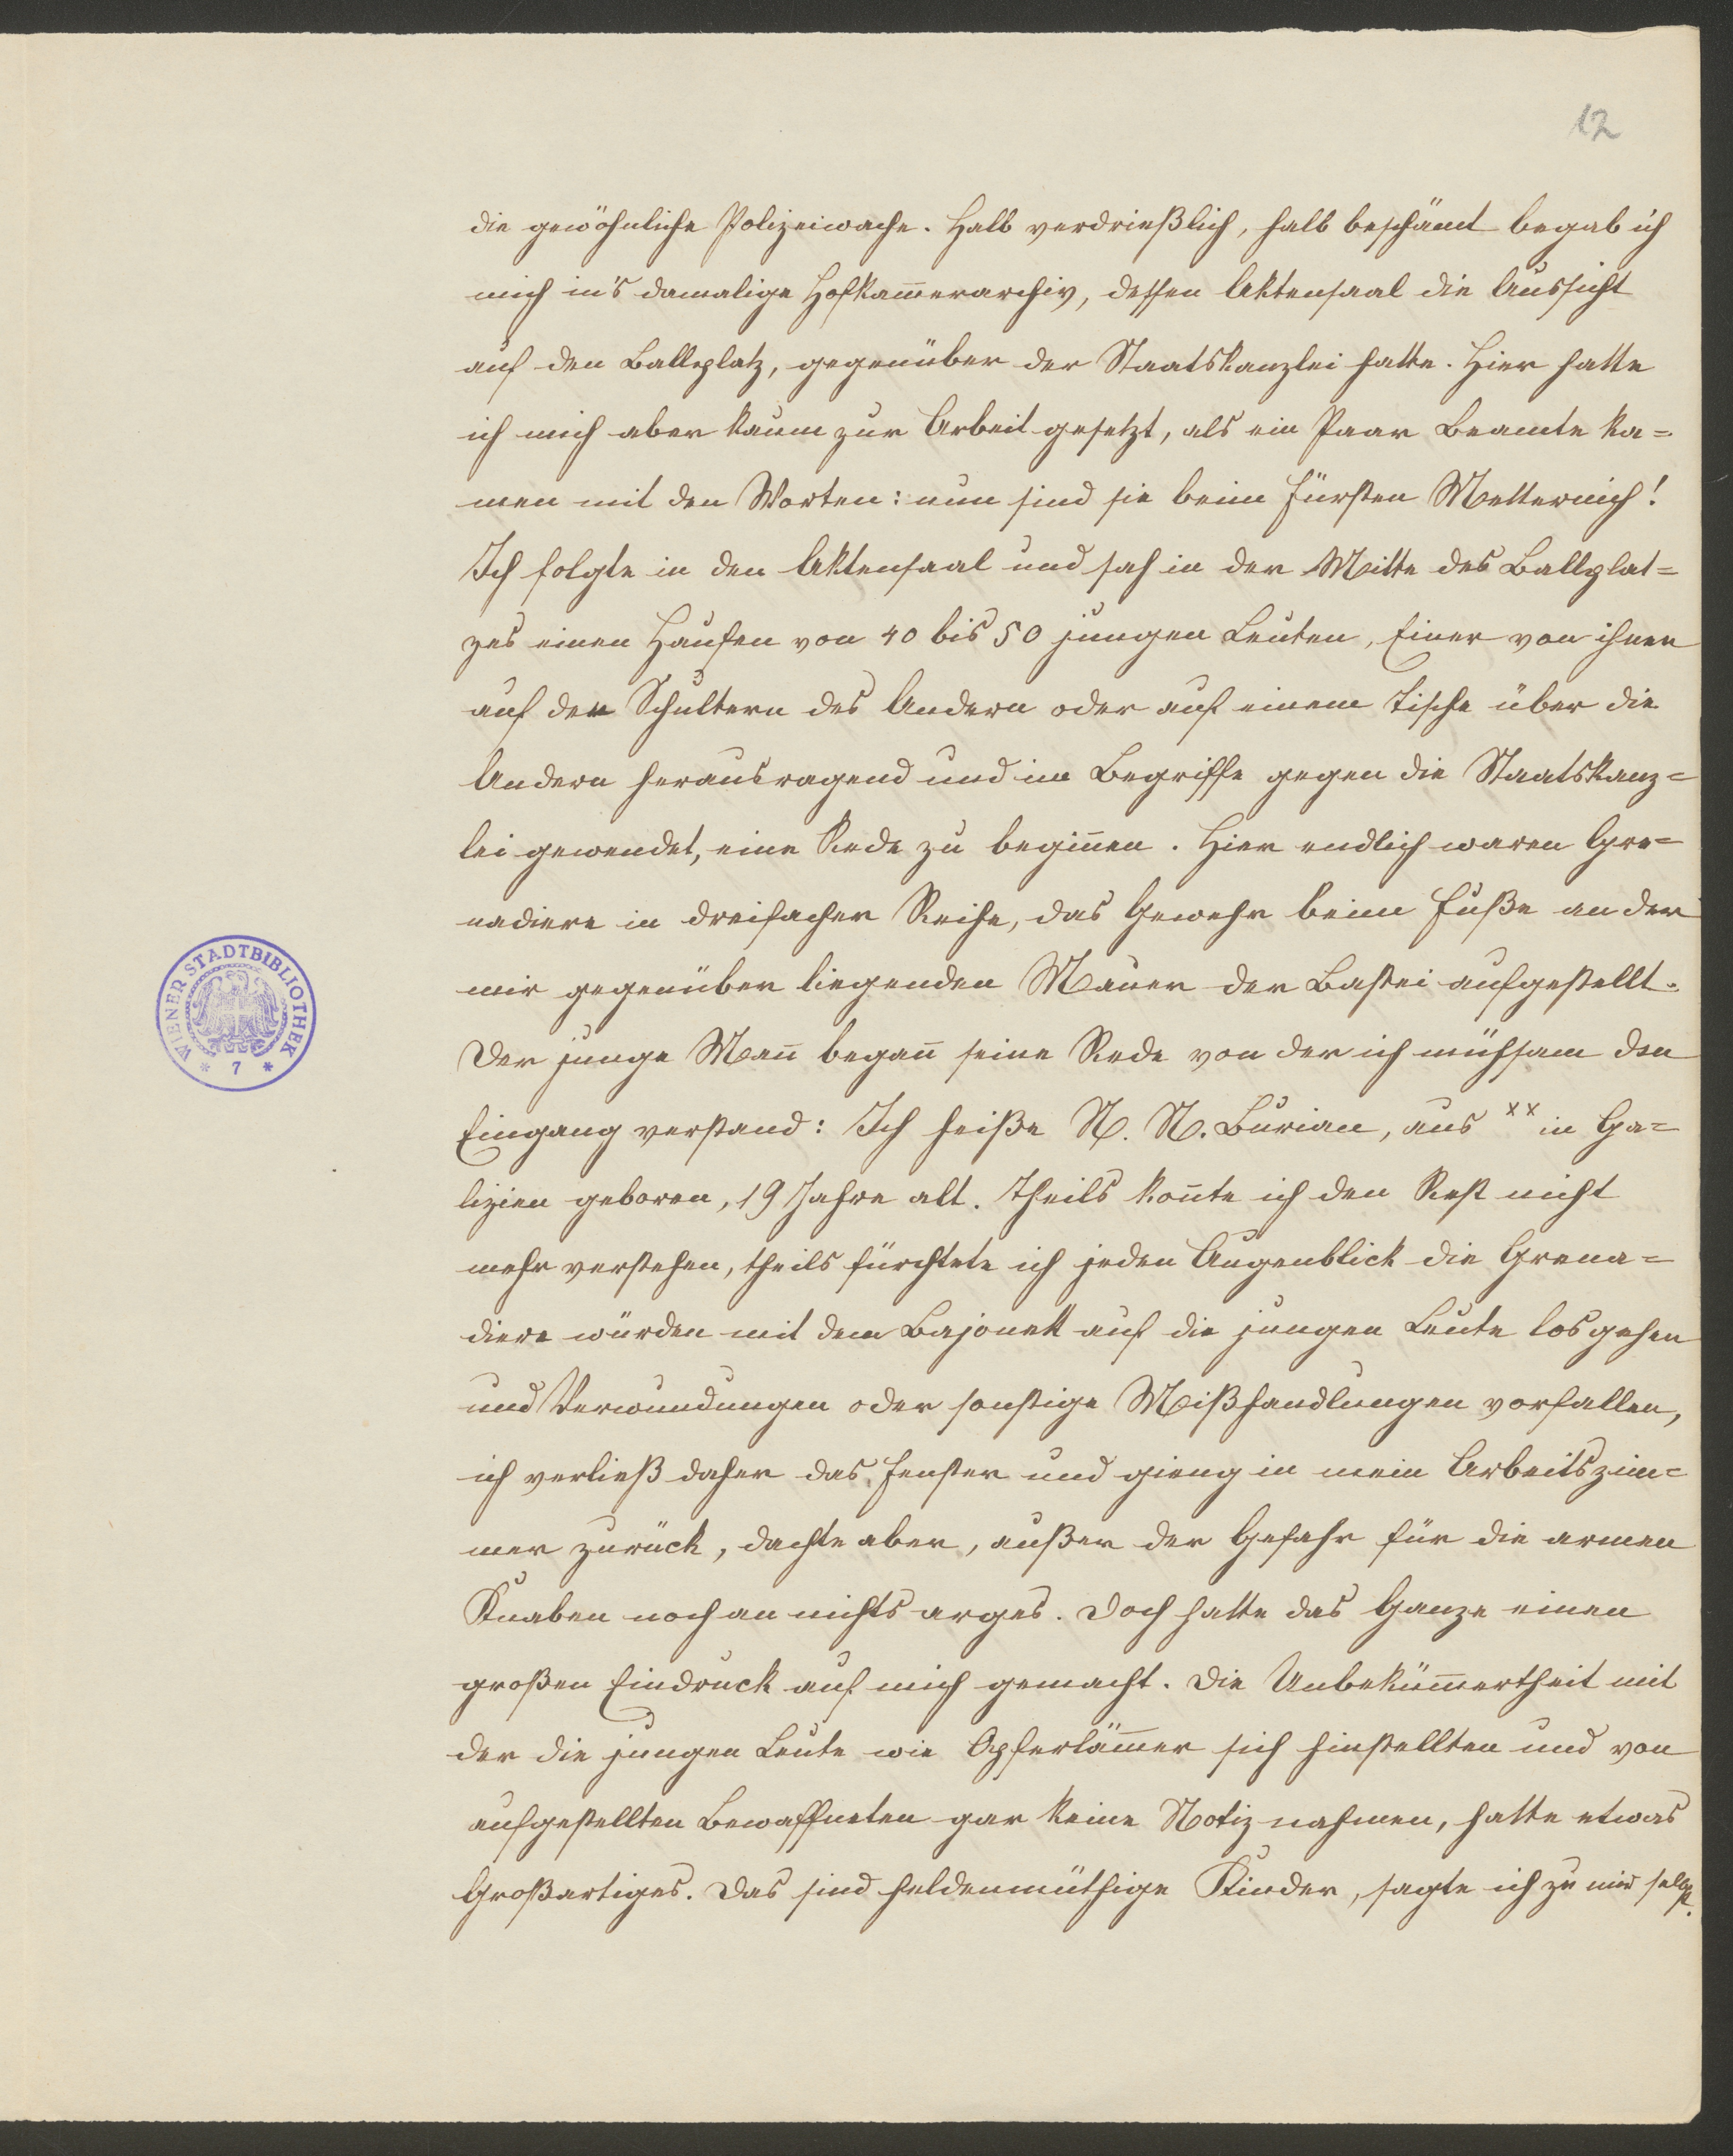 12
die gewöhnliche Polizeiwache. Halb verdrießlich, halb beschämt begab ich
mich in's damalige Hofkam̅erarchiv, dessen Aktensaal die Aussicht
auf den Ballplatz, gegenüber der Staatskanzlei hatte. Hier hatte
ich mich aber kaum zur Arbeit gesetzt, als ein Paar Beamte ka=
men mit den Worten: nun sind sie beim Fürsten Metternich!
Ich folgte in den Aktensaal und sah in der Mitte des Ballplat=
zes einen Haufen von 40 bis 50 jungen Leuten, Einer von ihnen
auf den Schultern des Andern oder auf einem Tische über die
Andern herausragend und im Begriffe gegen die Staatskanz=
lei gewendet, eine Rede zu begin̅en. Hier endlich waren Gre=
nadiere in dreifacher Reihe, das Gewehr beim Fuße an der
mir gegenüber liegenden Mauer der Bastei aufgestellt.
Der junge Man̅ began̅ seine Rede von der ich mühsam den
Eingang verstand: Ich heiße N. N. Burian, aus xx in Ga=
lizien geboren, 19 Jahre alt. Theils kon̅te ich den Rest nicht
mehr verstehen, theils fürchtete ich jeden Augenblick die Grena=
diere würden mit dem Bajonett auf die jungen Leute losgehen
und Verwundungen oder sonstige Mißhandlungen vorfallen,
ich verließ daher das Fenster und gieng in mein Arbeitszim=
mer zurück, dachte aber, außer der Gefahr für die armen
Knaben noch an nichts arges. Doch hatte das Ganze einen
großen Eindruck auf mich gemacht. Die Unbeküm̅ertheit mit
der die jungen Leute wie Opferläm̅er sich hinstellten und von
aufgestellten Bewaffneten gar keine Notiz nahmen, hatte etwas
Großartiges. Das sind heldenmüthige Kinder, sagte ich zu mir selbst.
WIENER STADTBIBLIOTHEK
* 7 *